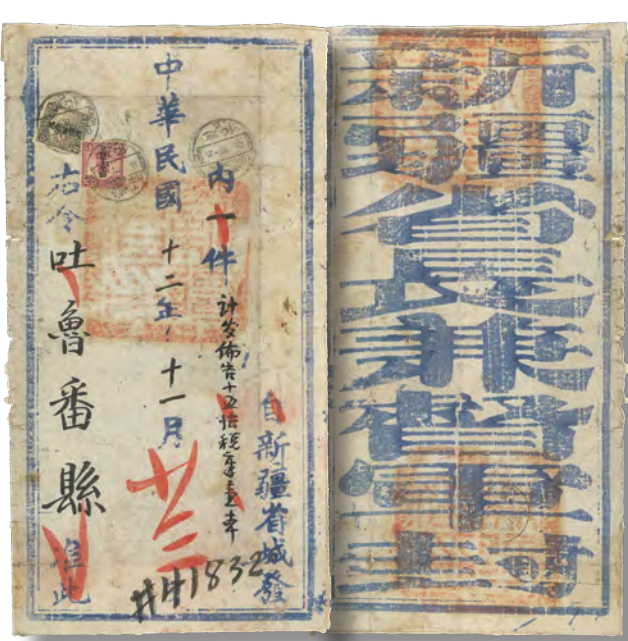 新疆省長兼督軍封
自新疆省城發
內件
計發佈告十五張稅章壹本
中華民國十二年十一月廿三
右令吐魯番縣准此
1832